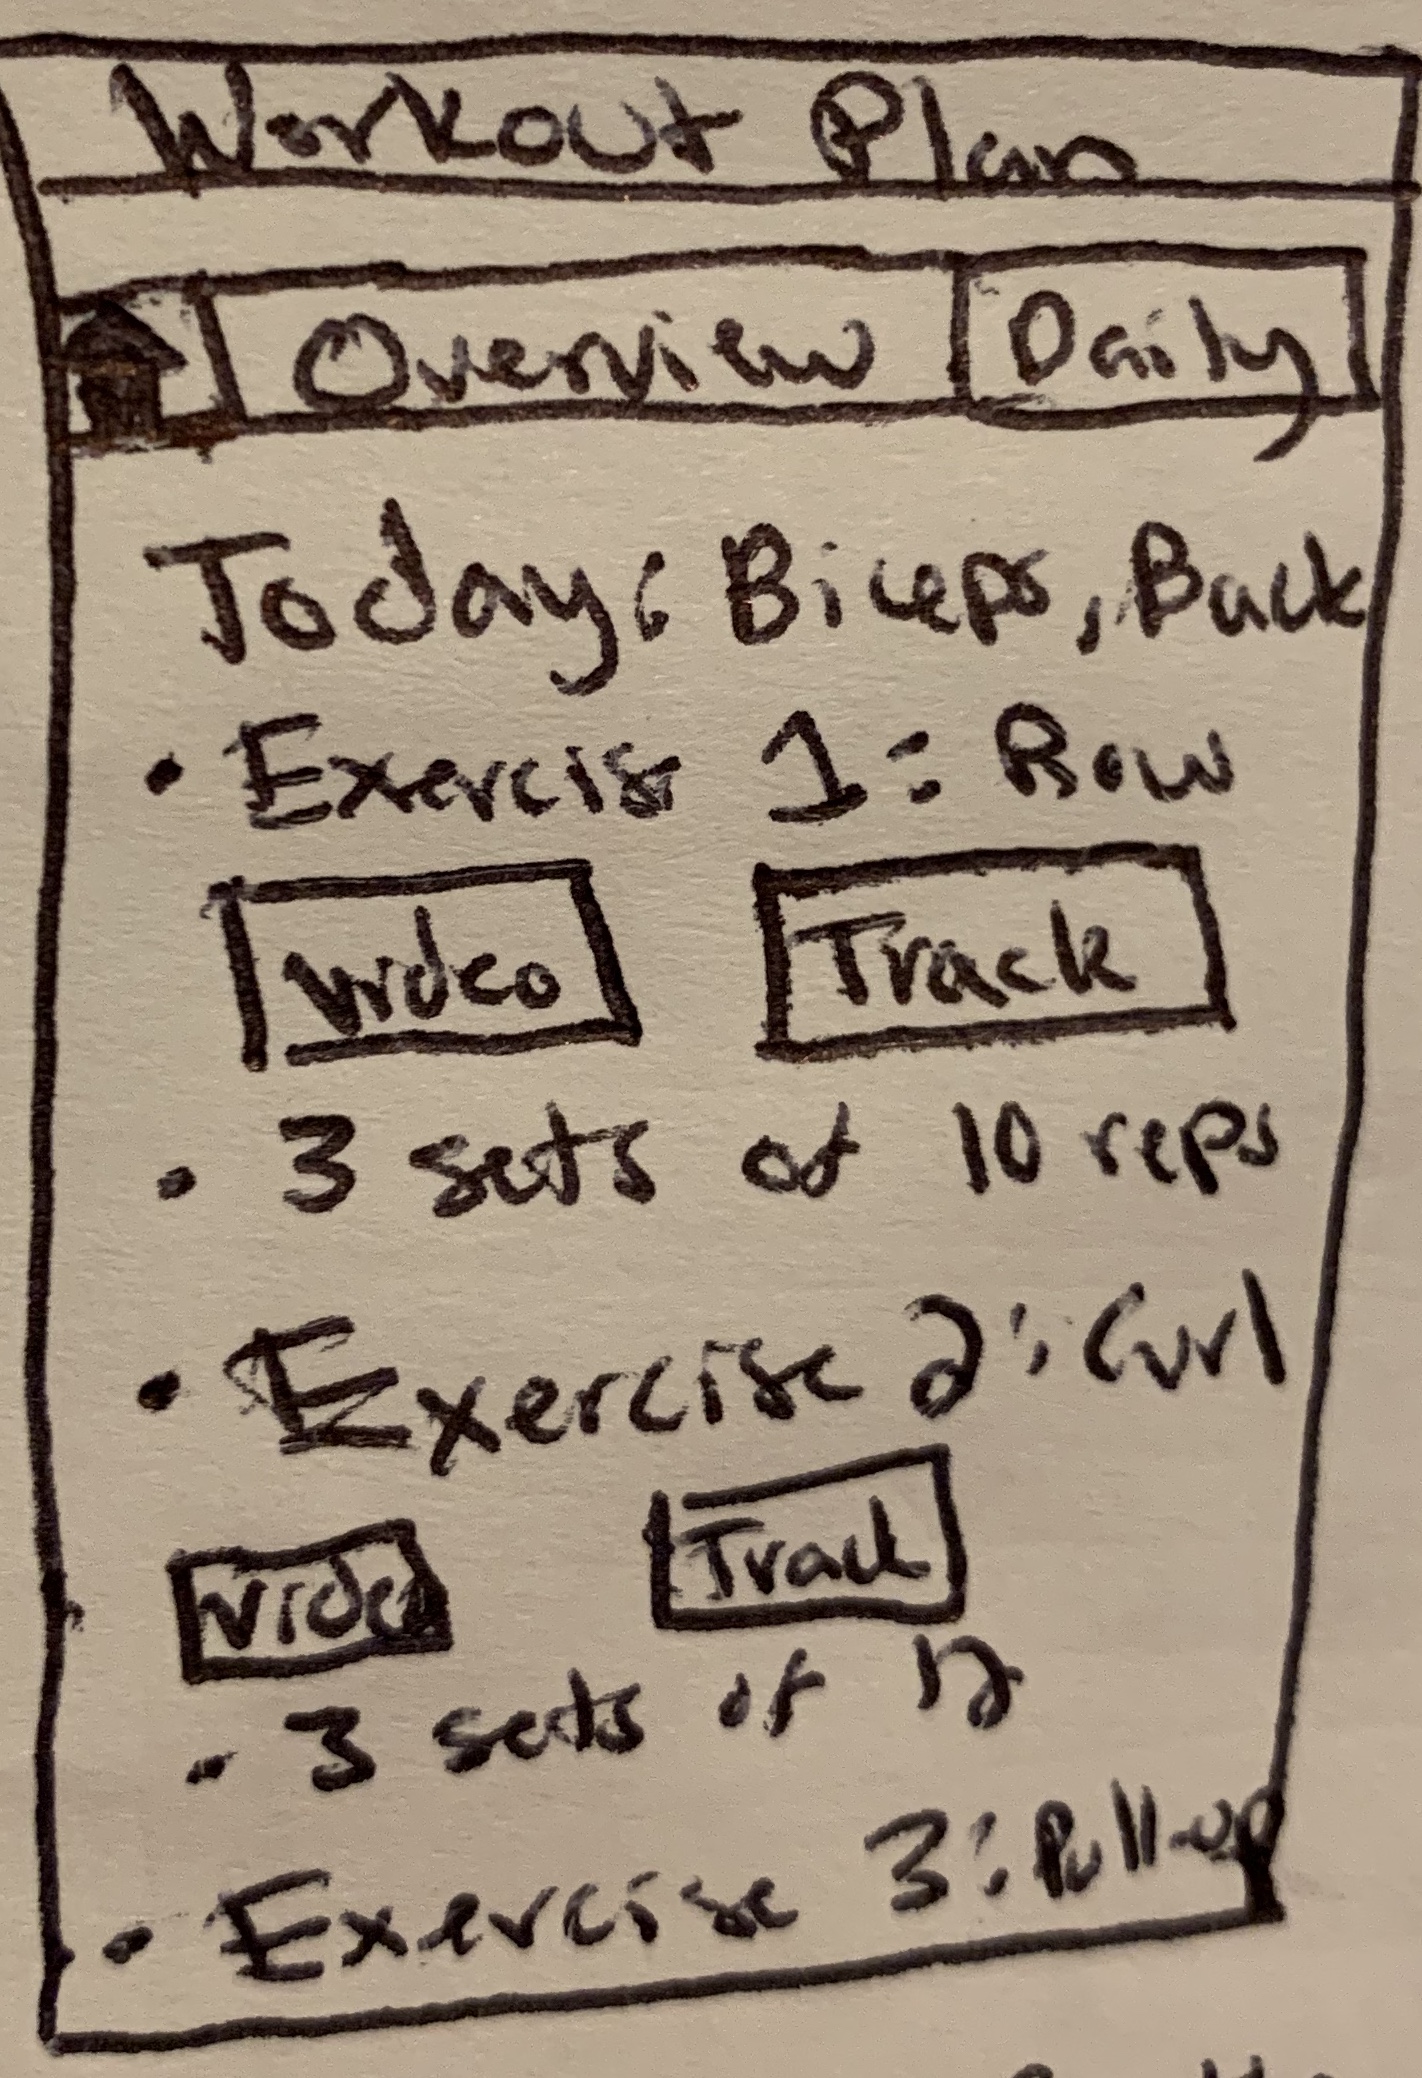 Workout Plan
Overview Daily
Today: Biceps, Back
• Exercise 1: Row
Video Track
• 3 sets of 10 reps
• Exercise 2: Curl
Video Track
• 3 sets of 12
• Exercise 3: Pull-up